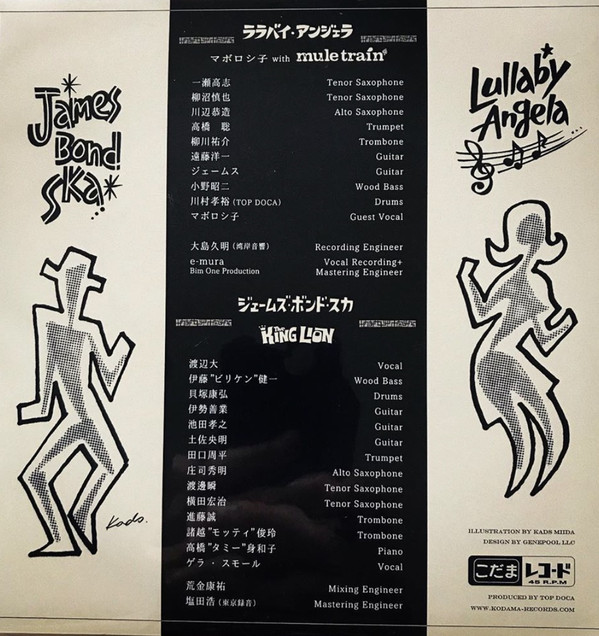 James
Bond
Ska
Kads.
ララバイ・アンジェラ
マボロシ子 with muletrain
一瀬高志 Tenor Saxophone
柳沼慎也 Tenor Saxophone
川辺恭造 Alto Saxophone
高橋 聡 Trumpet
柳川祐介 Trombone
遠藤洋一 Guitar
ジェームス Guitar
小野昭二 Wood Bass
川村孝裕 (TOP DOCA) Drums
マボロシ子 Guest Vocal
大島久明 (湾岸音響) Recording Engineer
e-mura Vocal Recording+
Bim One Production Mastering Engineer
ジェームズ・ボンド・スカ
The KING LION
渡辺大 Vocal
伊藤"ビリケン"健一 Wood Bass
貝塚康弘 Drums
伊勢善業 Guitar
池田孝之 Guitar
土佐央明 Guitar
田口周平 Trumpet
庄司秀明 Alto Saxophone
渡邊瞬 Tenor Saxophone
横田宏治 Tenor Saxophone
進藤誠 Trombone
諸越"モッティ"俊玲 Trombone
高橋"タミー"身和子 Piano
ゲラ・スモール Vocal
荒金康祐 Mixing Engineer
塩田浩 (東京録音) Mastering Engineer
Lullaby
Angela
ILLUSTRATION BY KADS MIIDA
DESIGN BY GENEPOOL LLC
こだま レコード
45 R.P.M
PRODUCED BY TOP DOCA
WWW.KODAMA-RECORDS.COM